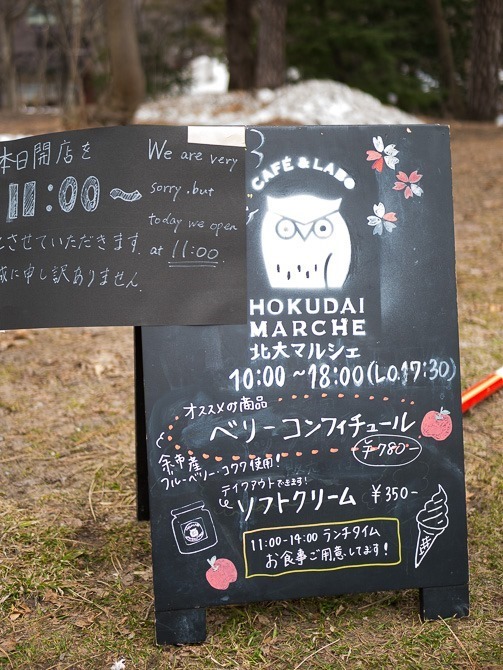 本日開店を
11:00〜
とさせていただきます.
誠に申し訳ありません.
We are very
sorry.but
today we open
at 11:00.
CAFÉ & LABO
HOKUDAI
MARCHE
北大マルシェ
10:00 ~18:00(L.O.17:30)
オススメの商品
ベリーコンフィチュール
¥780-
余市産
ブルーベリー・コクワ使用!
テイクアウトできます!
ソフトクリーム ¥350-
11:00-14:00 ランチタイム
お食事ご用意してます!